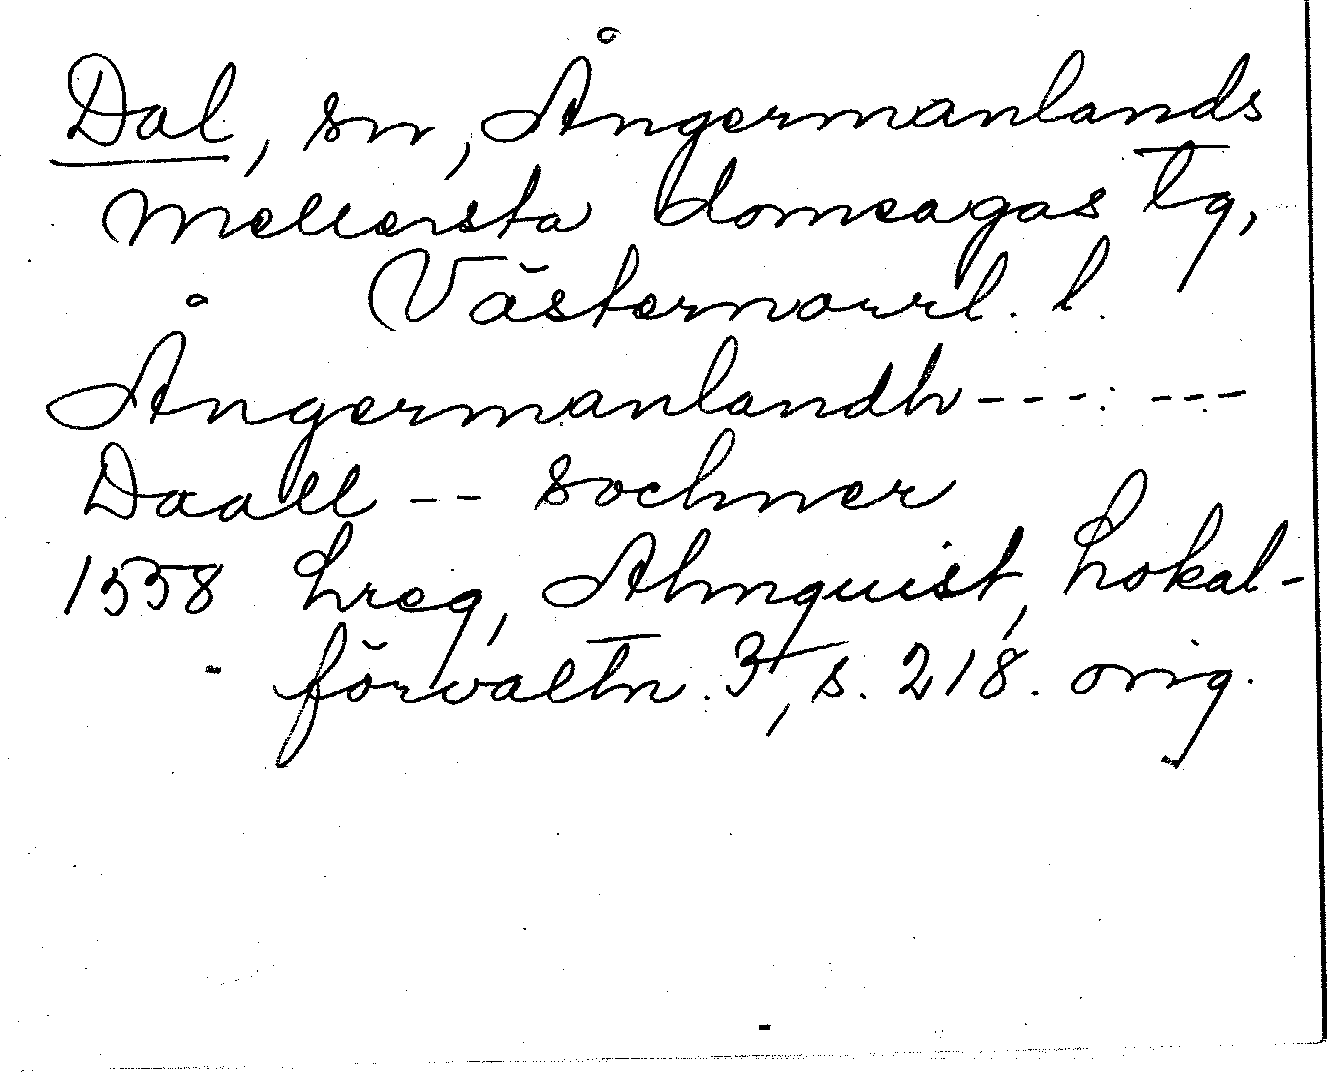 Dal, sn, Ångermanlands
mellersta domsagas tg,
Västernorrl. l.
Ångermanlandh --- ---
Daall -- sochner
1558 Lreg, Almquist, Lokal-
förvaltn. 3, s. 218. orig.